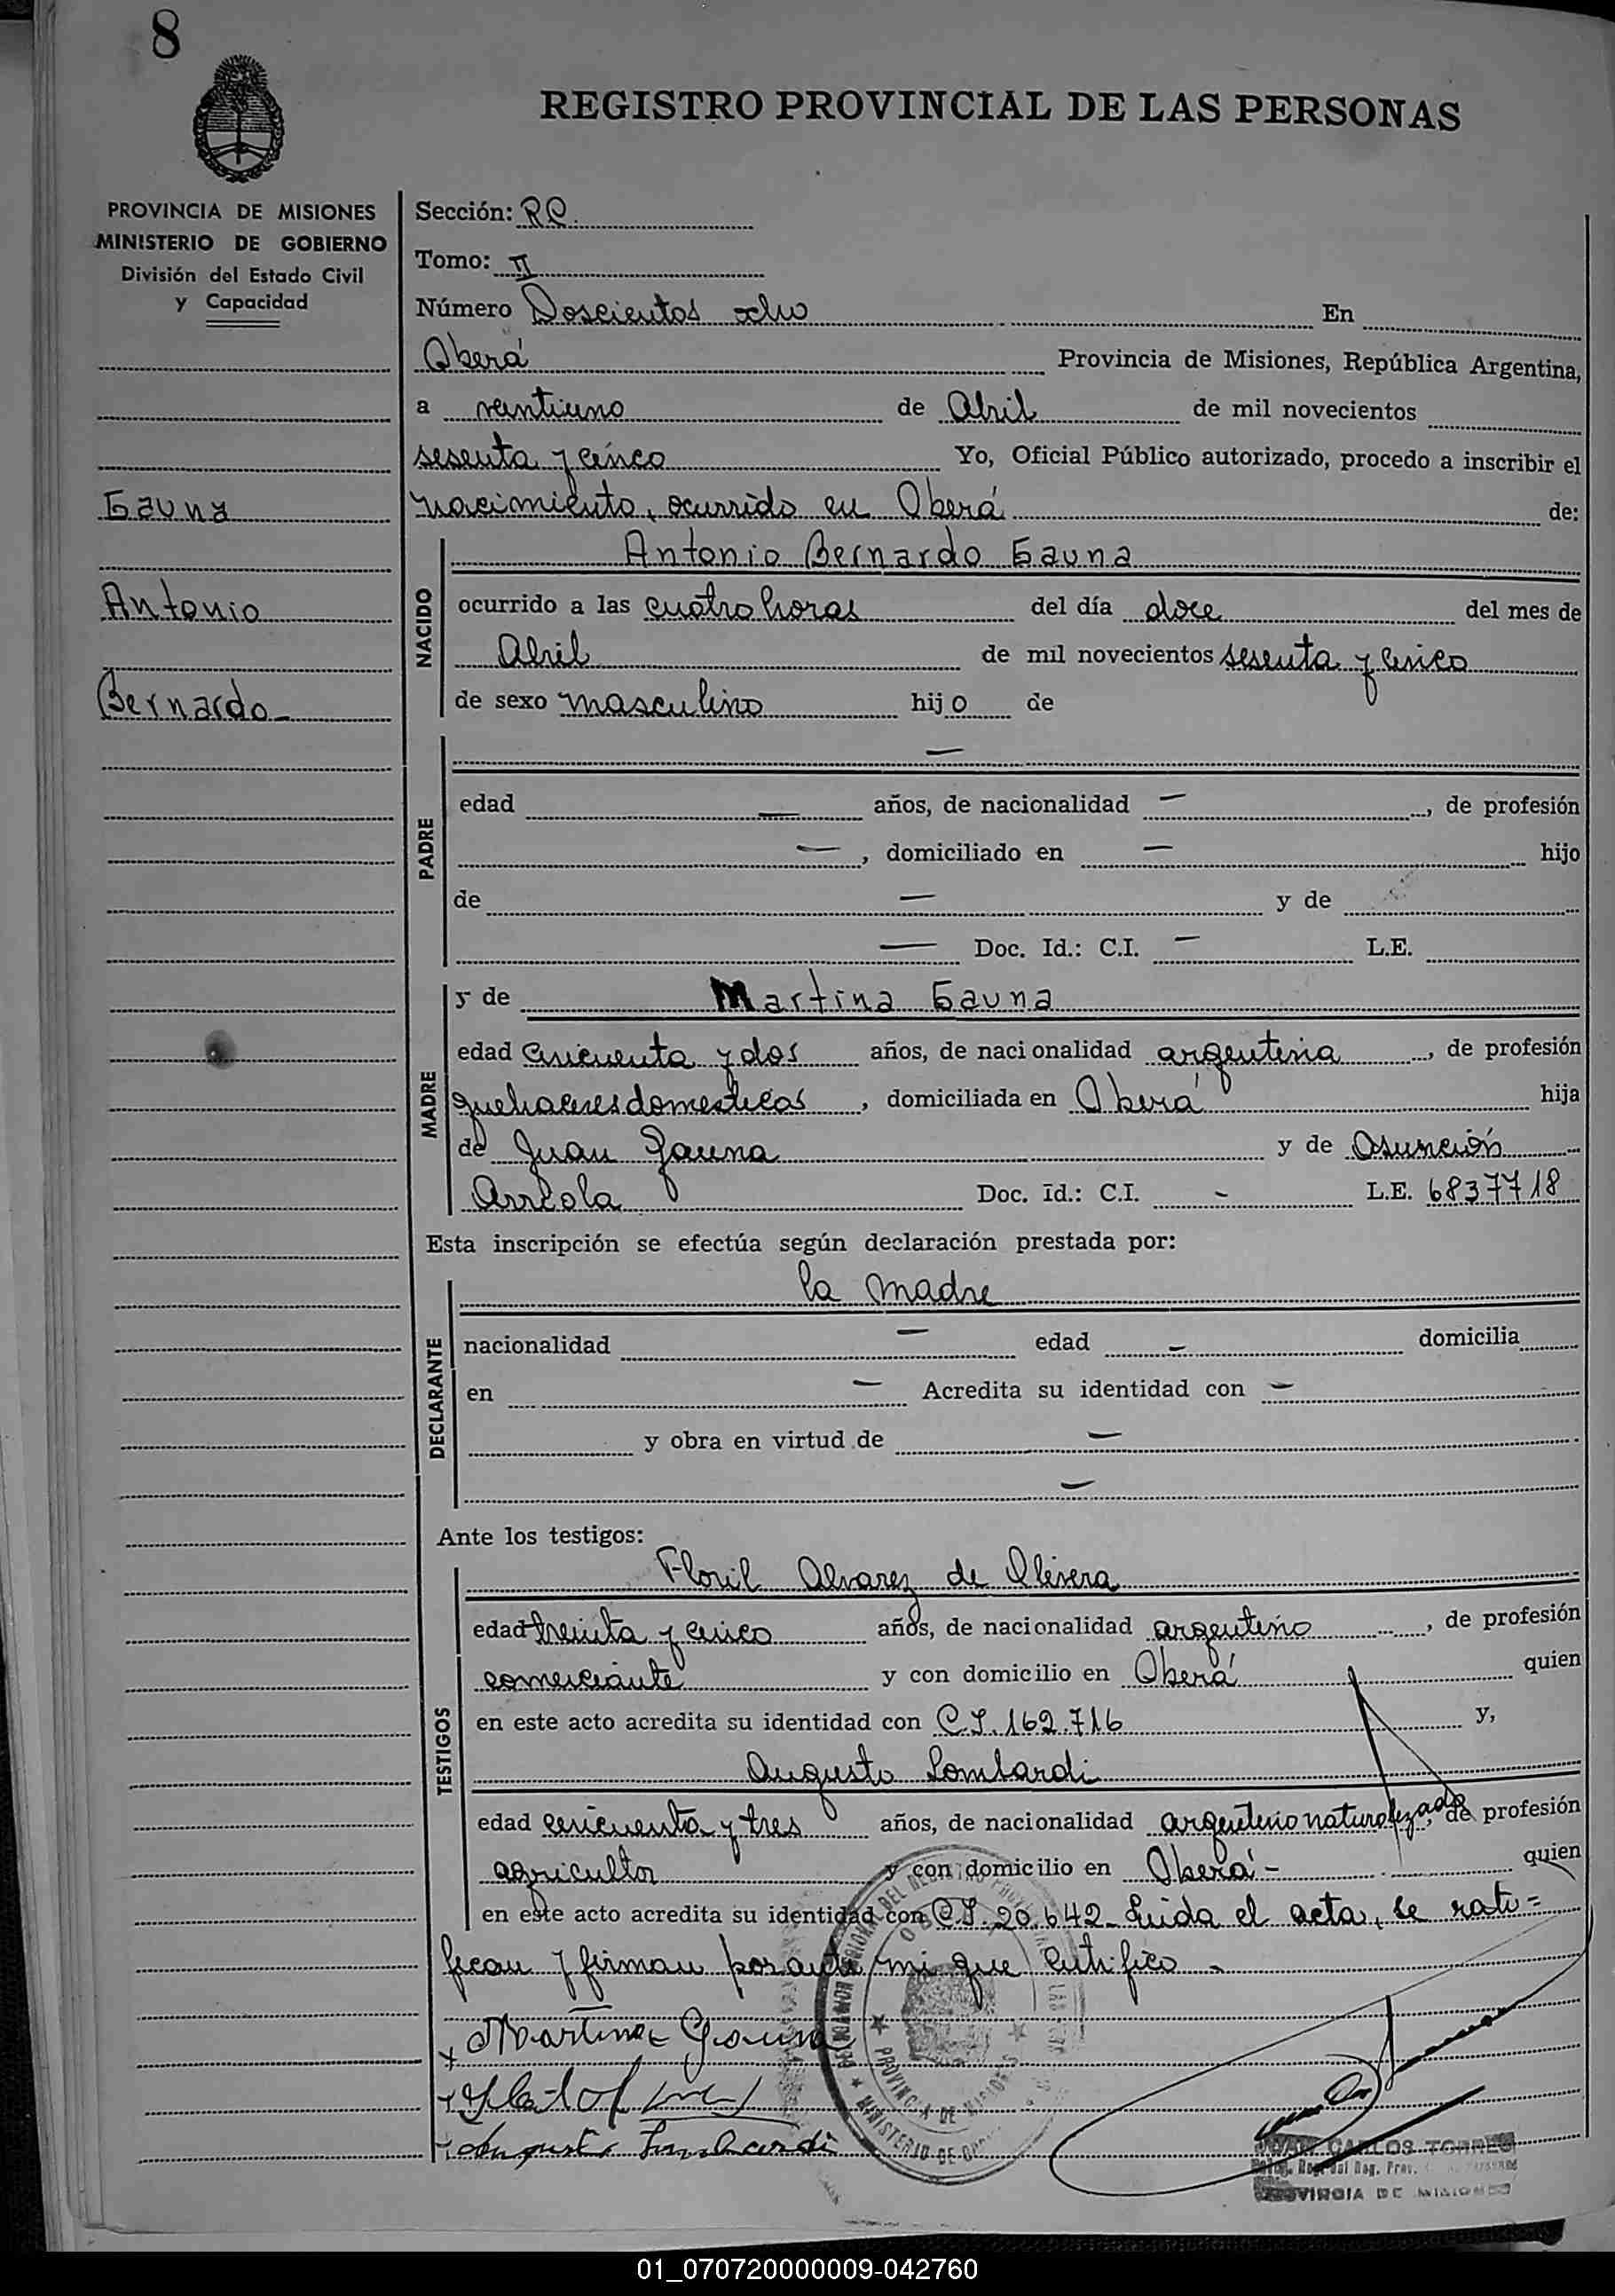 8
REGISTRO PROVINCIAL DE LAS PERSONAS
PROVINCIA DE MISIONES
MINISTERIO DE GOBIERNO
División del Estado Civil
y Capacidad
Gauna
Antonio
Bernardo
Sección: RC.
Tomo: II
Número Doscientos ocho En
Oberá Provincia de Misiones, República Argentina,
a veintiuno de Abril de mil novecientos
sesenta y cinco Yo, Oficial Público autorizado, procedo a inscribir el
nacimiento, ocurrido en Oberá de:
NACIDO
Antonio Bernardo Gauna
ocurrido a las cuatro horas del día doce del mes de
Abril de mil novecientos sesenta y cinco
de sexo masculino hijo de
PADRE
—
edad — años, de nacionalidad — , de profesión
— , domiciliado en — hijo
de — y de
— Doc. Id.: C.I. — L.E.
MADRE
y de Martina Gauna
edad cincuenta y dos años, de nacionalidad argentina , de profesión
quehaceres domesticos , domiciliada en Oberá hija
de Juan Gauna y de Asunción
Arreola Doc. Id.: C.I. - L.E. 6837718
Esta inscripción se efectúa según declaración prestada por:
DECLARANTE
la madre
nacionalidad — edad — domicilia
en — Acredita su identidad con —
y obra en virtud de —
—
Ante los testigos:
TESTIGOS
Floril Alvarez de Olivera
edad treinta y cinco años, de nacionalidad argentino , de profesión
comerciante y con domicilio en Oberá quien
en este acto acredita su identidad con C.I. 162.716 y,
Augusto Lombardi
edad cincuenta y tres años, de nacionalidad argentino naturalizado, de profesión
agricultor y con domicilio en Oberá - quien
en este acto acredita su identidad con C.I. 20.642- Leida el acta, se rati=
fican y firman por ante mi que certifico -
x Martina Gauna
Augusto Lombardi
PROVINCIA DE MISIONES
MINISTERIO DE
JUAN CARLOS TORRES
PROVINCIA DE MISIONES
01_070720000009-042760